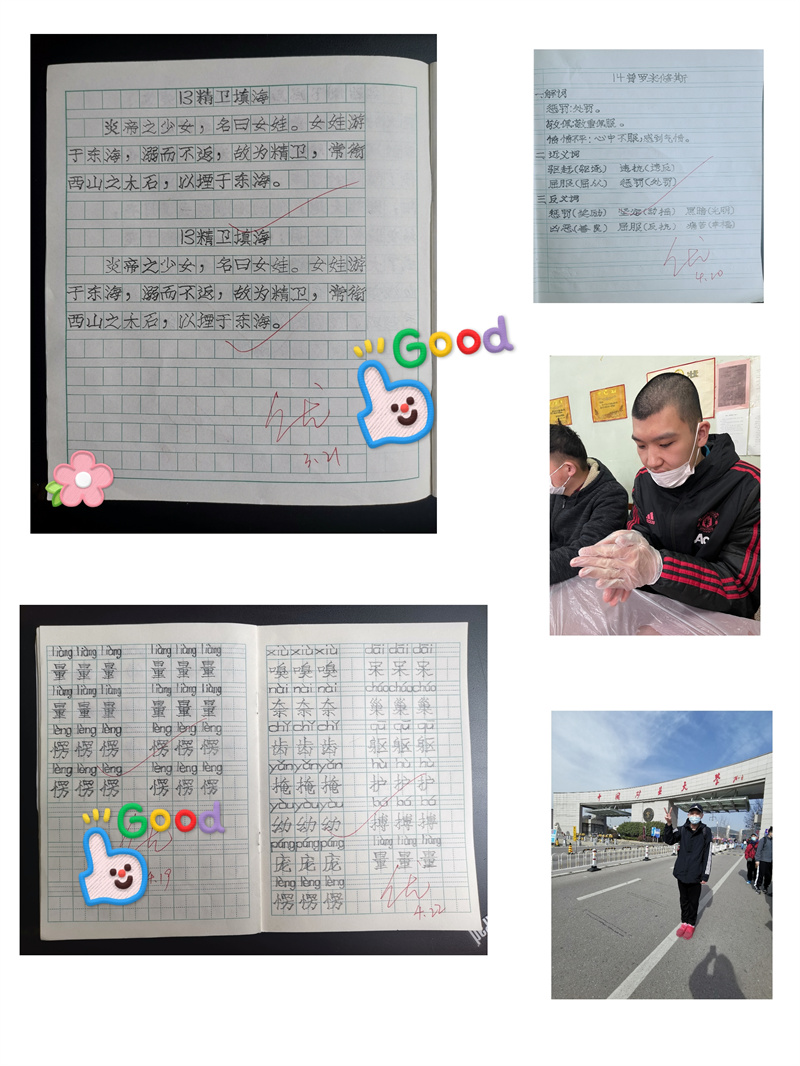 13精卫填海
炎帝之少女，名曰女娃。女娃游
于东海，溺而不返，故为精卫，常衔
西山之木石，以堙于东海。
13精卫填海
炎帝之少女，名曰女娃。女娃游
于东海，溺而不返，故为精卫，常衔
西山之木石，以堙于东海。
优
3.21
Good
14普罗米修斯
一.解词
惩罚:处罚。
敬佩:敬重佩服。
愤愤不平：心中不服,感到气愤。
二.近义词
驱赶(驱逐) 违抗(违反)
屈服(屈从) 惩罚(处罚)
三.反义词
惩罚(奖励) 黑暗(光明)
凶恶(善良) 屈服(反抗) 痛苦(幸福)
优
4.20
AC
liàng liàng liàng liàng liàng liàng
量 量 量 量 量 量
liàng liàng liàng liàng liàng liàng
量 量 量 量 量 量
lèng lèng lèng lèng lèng lèng
愣 愣 愣 愣 愣 愣
lèng lèng lèng lèng lèng lèng
愣 愣 愣 愣 愣 愣
Good
4.19
xiù xiù xiù dāi dāi dāi
嗅 嗅 嗅 呆 呆 呆
nài nài nài cháo cháo cháo
奈 奈 奈 巢 巢 巢
chǐ chǐ chǐ qū qū qū
齿 齿 齿 躯 躯 躯
yǎn yǎn yǎn hù hù hù
掩 掩 掩 护 护 护
yòu yòu yòu bó bó bó
幼 幼 幼 搏 搏 搏
páng páng páng liàng liàng liàng
庞 庞 庞 量 量 量
lèng lèng lèng
愣 愣 愣
优
4.22
中国矿业大学